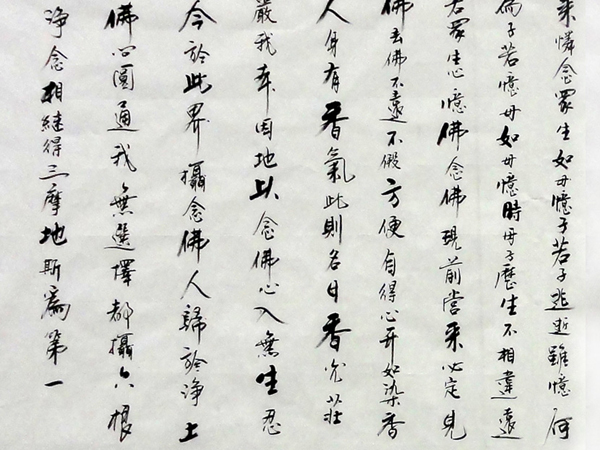 來憐念眾生如母憶子若子逃逝雖憶何
為子若憶母如母憶時母子歷生不相違遠
若眾生心憶佛念佛現前當來必定見
佛去佛不遠不假方便自得心開如染香
人身有香氣此則名曰香光莊
嚴我本因地以念佛心入無生忍
今於此界攝念佛人歸於淨土
佛心圓通我無選擇都攝六根
淨念相繼得三摩地斯為第一